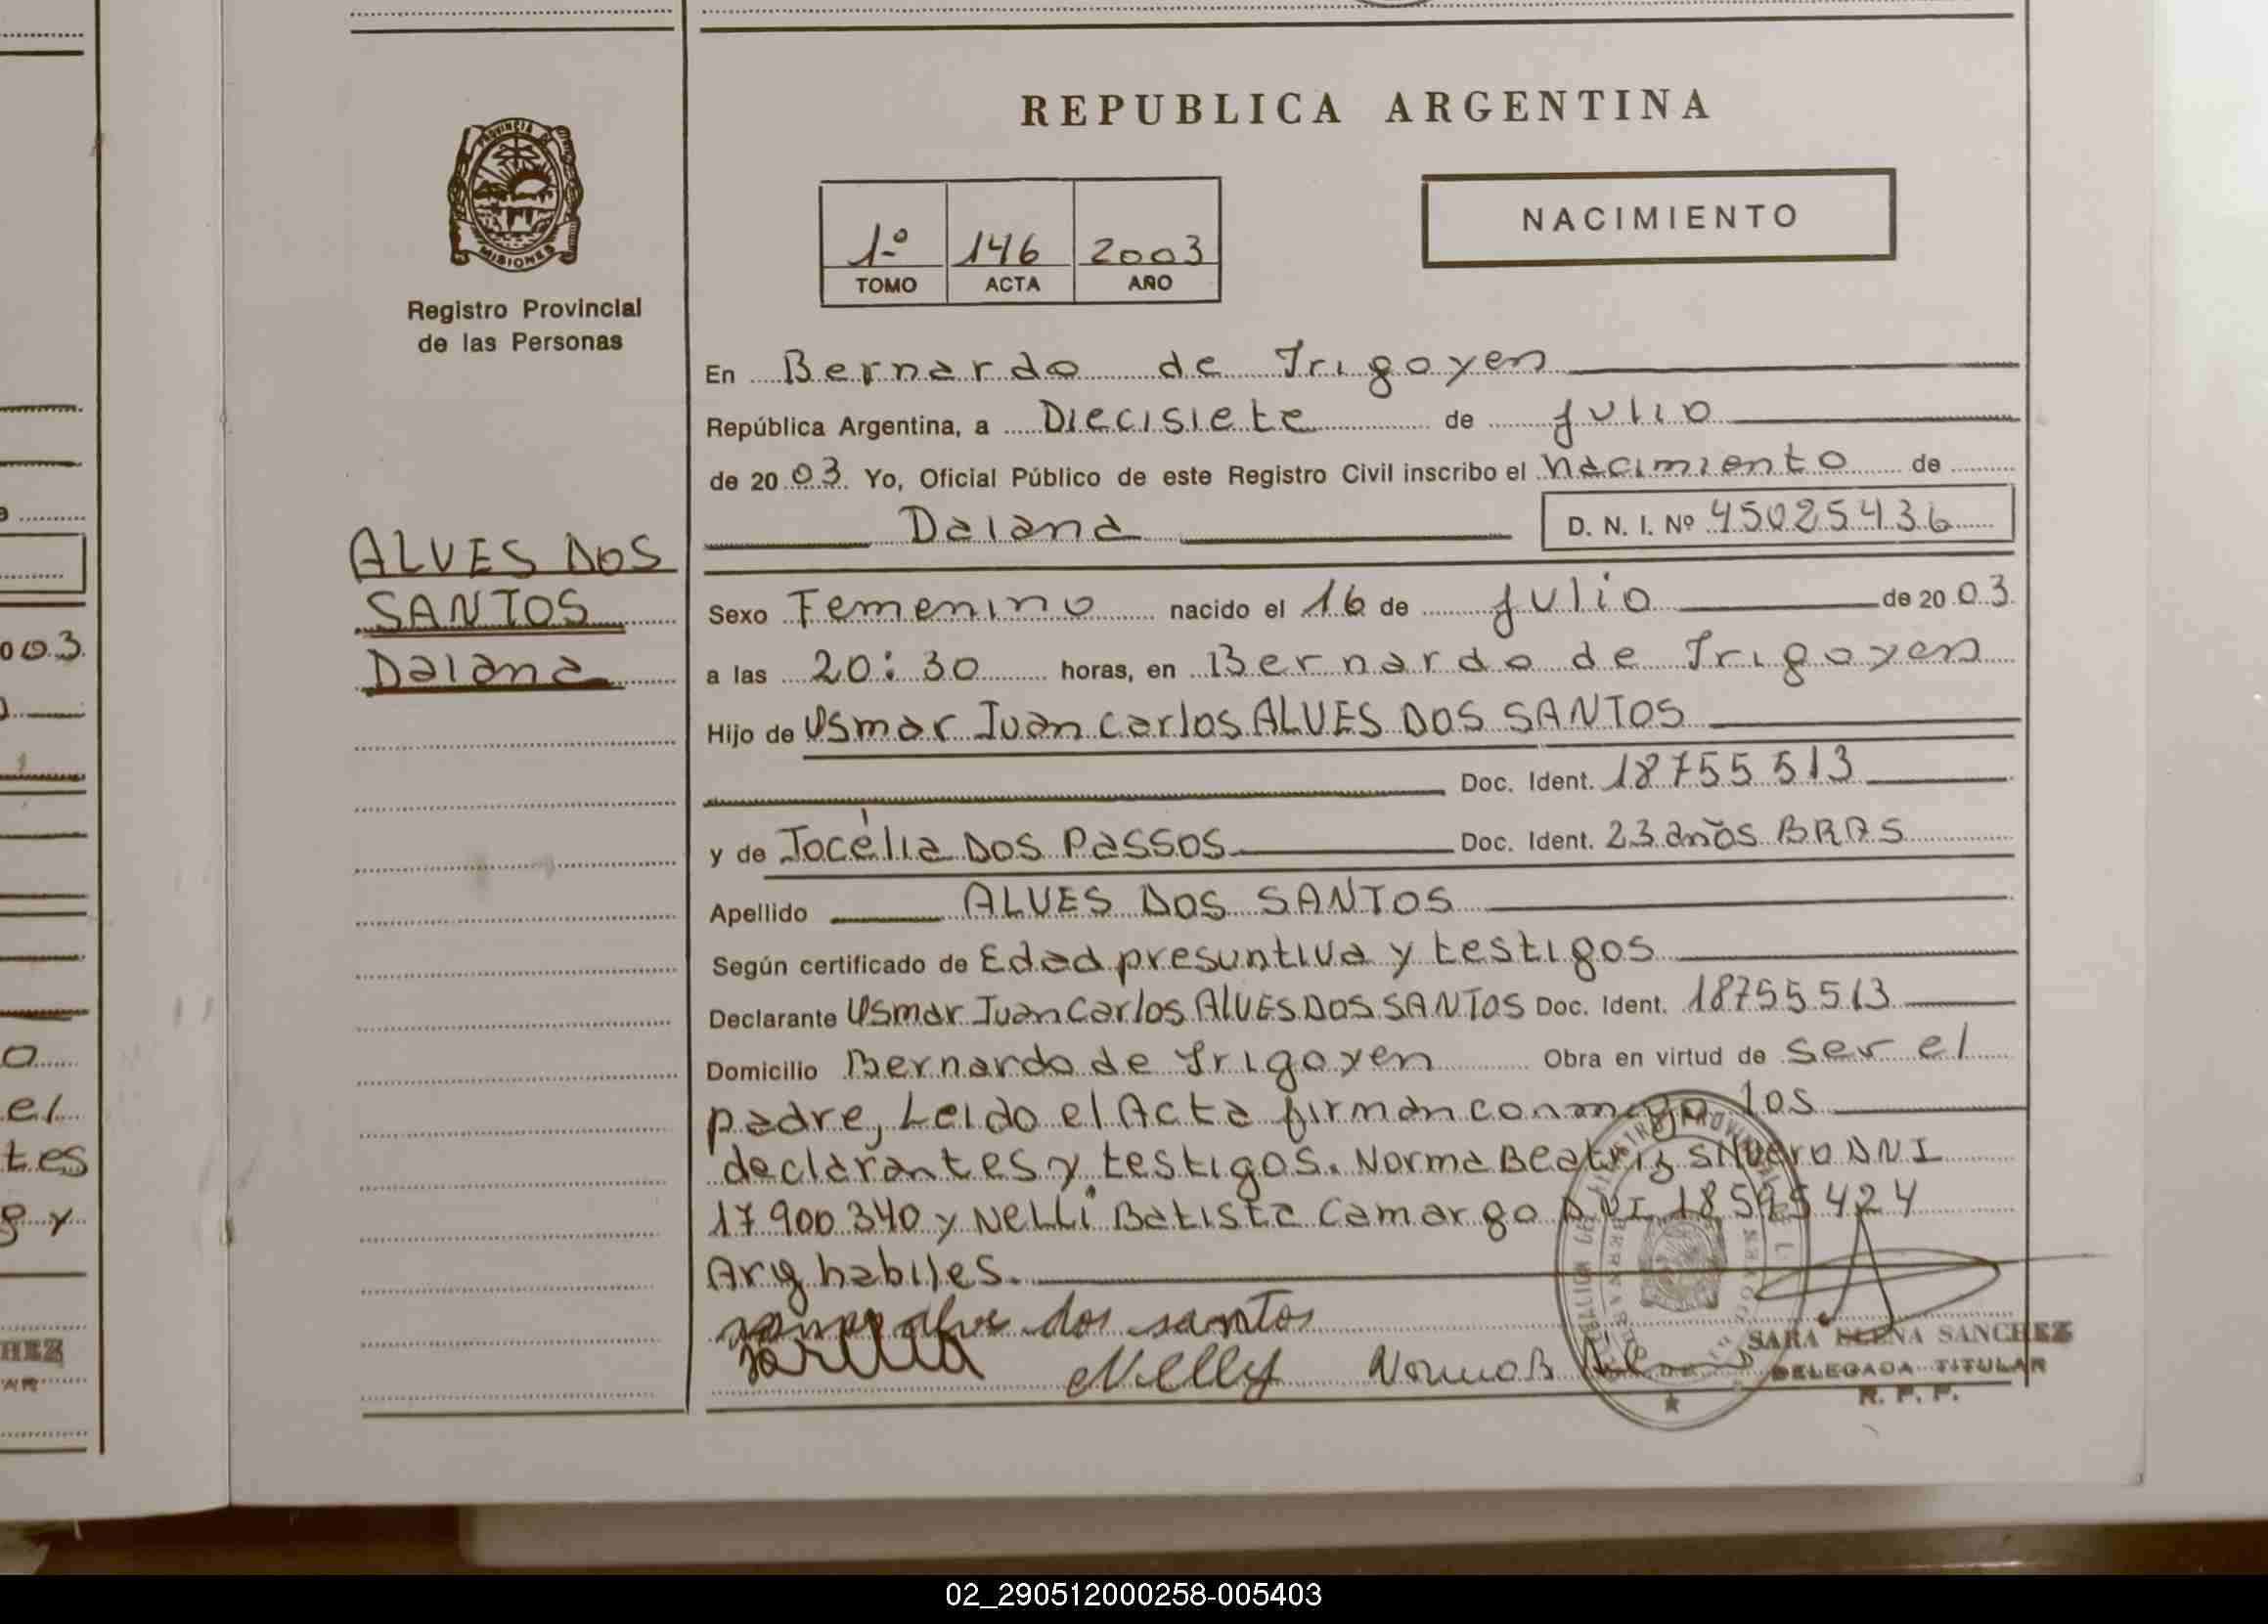 REPUBLICA ARGENTINA
PROVINCIA DE
MISIONES
Registro Provincial
de las Personas
1º 146 2003
TOMO ACTA AÑO
NACIMIENTO
En Bernardo de Irigoyen
República Argentina, a Diecisiete de julio
de 2003 Yo, Oficial Público de este Registro Civil inscribo el nacimiento de
Daiana D. N. I. Nº 45025436
ALVES DOS
SANTOS
Daiana
Sexo Femenino nacido el 16 de julio de 2003
a las 20:30 horas, en Bernardo de Irigoyen
Hijo de Usmar Juan Carlos ALVES DOS SANTOS
Doc. Ident. 18755513
y de Jocélia DOS PASSOS Doc. Ident. 23 años BRAS
Apellido ALVES DOS SANTOS
Según certificado de Edad presuntiva y testigos
Declarante Usmar Juan Carlos ALVES DOS SANTOS Doc. Ident. 18755513
Domicilio Bernardo de Irigoyen Obra en virtud de ser el
padre, Leido el Acta firman conmigo los
declarantes y testigos. Norma Beatriz DNI
17900340 y NELLi Batista Camargo DNI 18595424
Arg habiles.
dos santos
Nelly Norma B
SARA ELENA SANCHEZ
DELEGADA TITULAR
R. P. P.
003
el
tes
g y
HEZ
AR
02_290512000258-005403